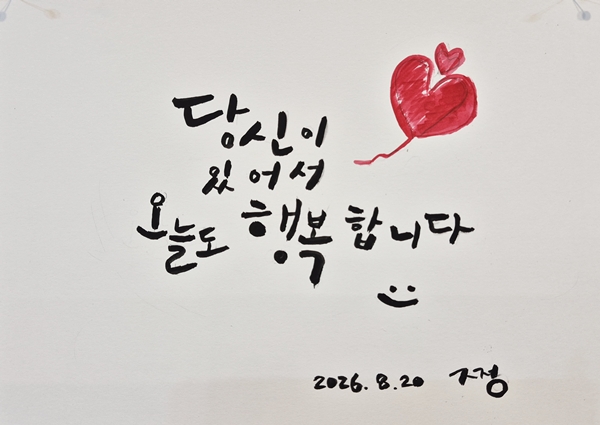 당신이
있어서
오늘도 행복합니다
2026.8.20